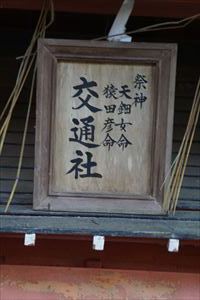 祭神
天鈿女命
猿田彦命
交通社